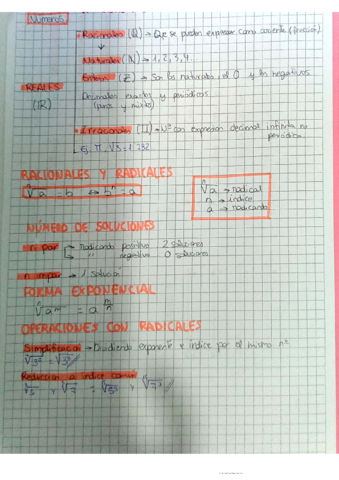 Números
Racionales (Q) → Que se pueden expresar como cociente (fracción)
Naturales (N) → 1, 2, 3, 4..
Enteros (Z) → Son los naturales, el 0 y los negativos
REALES
(IR)
Decimales exactos y periódicos
(puros y mixtos)
Irracionales (II) → Nº con expresión decimal infinita no periódica.
Ej: π, √3 = 1'732
RACIONALES Y RADICALES
ⁿ√a = b ↔ bⁿ = a
ⁿ√a → radical
n → índice
a → radicando
NÚMERO DE SOLUCIONES
n par → Radicando positivo 2 soluciones
→ " negativo 0 soluciones
n impar → 1 solución
FORMA EXPONENCIAL
ⁿ√aᵐ = a^(m/n)
OPERACIONES CON RADICALES
Simplificación → Dividiendo exponente e índice por el mismo nº
Reducción a índice común